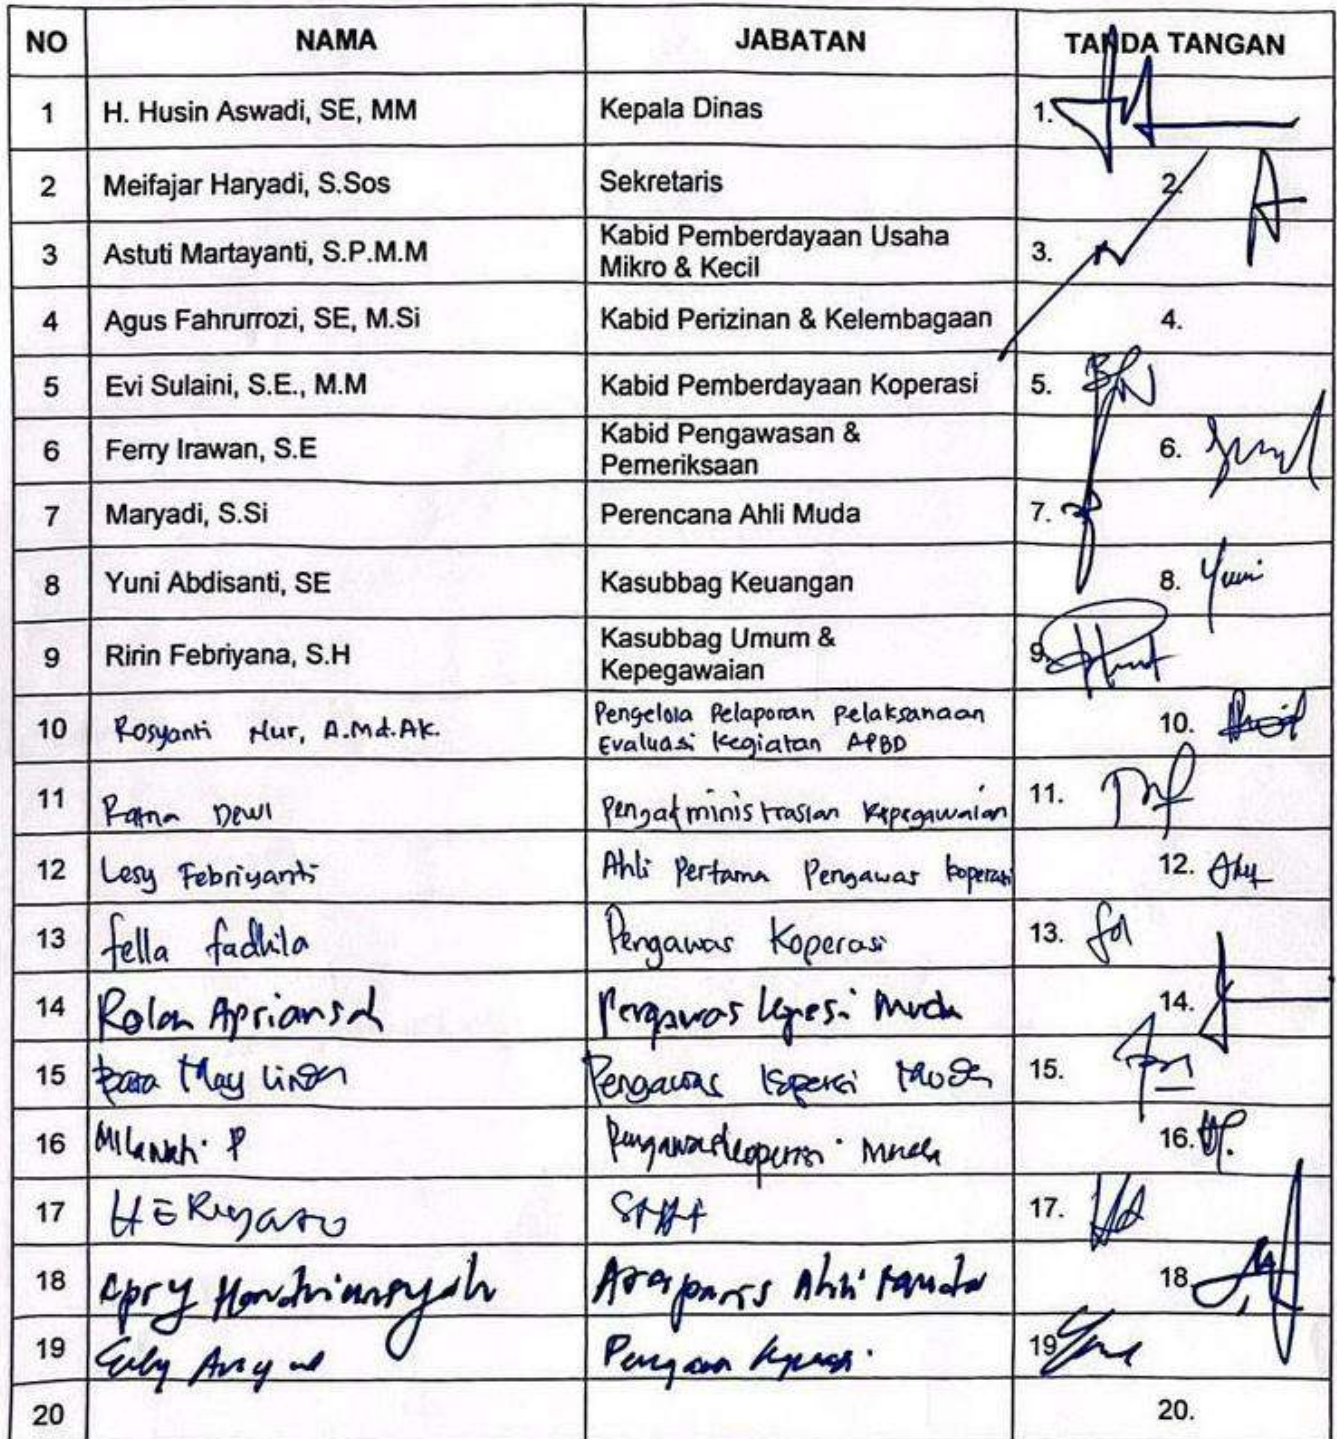 NO NAMA JABATAN TANDA TANGAN
1 H. Husin Aswadi, SE, MM Kepala Dinas 1.
2 Meifajar Haryadi, S.Sos Sekretaris 2.
3 Astuti Martayanti, S.P.M.M Kabid Pemberdayaan Usaha
Mikro & Kecil 3.
4 Agus Fahrurrozi, SE, M.Si Kabid Perizinan & Kelembagaan 4.
5 Evi Sulaini, S.E., M.M Kabid Pemberdayaan Koperasi 5.
6 Ferry Irawan, S.E Kabid Pengawasan &
Pemeriksaan 6.
7 Maryadi, S.Si Perencana Ahli Muda 7.
8 Yuni Abdisanti, SE Kasubbag Keuangan 8. Yuni
9 Ririn Febriyana, S.H Kasubbag Umum &
Kepegawaian 9.
10 Rosyanti Nur, A.Md.Ak. Pengelola Pelaporan Pelaksanaan
Evaluasi Kegiatan APBD 10.
11 Ratna Dewi Pengadministrasian Kepegawaian 11.
12 Lesy Febriyanti Ahli Pertama Pengawas Koperasi 12.
13 fella fadhila Pengawas Koperasi 13.
14 Rolan Apriansah Pengawas Koperasi Muda 14.
15 May Linda Pengawas Koperasi Muda 15.
16 Milawati P Pengawas Koperasi Muda 16.
17 HERIYANTO Staff 17.
18 Apry Hendriansyah Ahli Muda 18.
19 Pengawas Koperasi 19.
20 20.